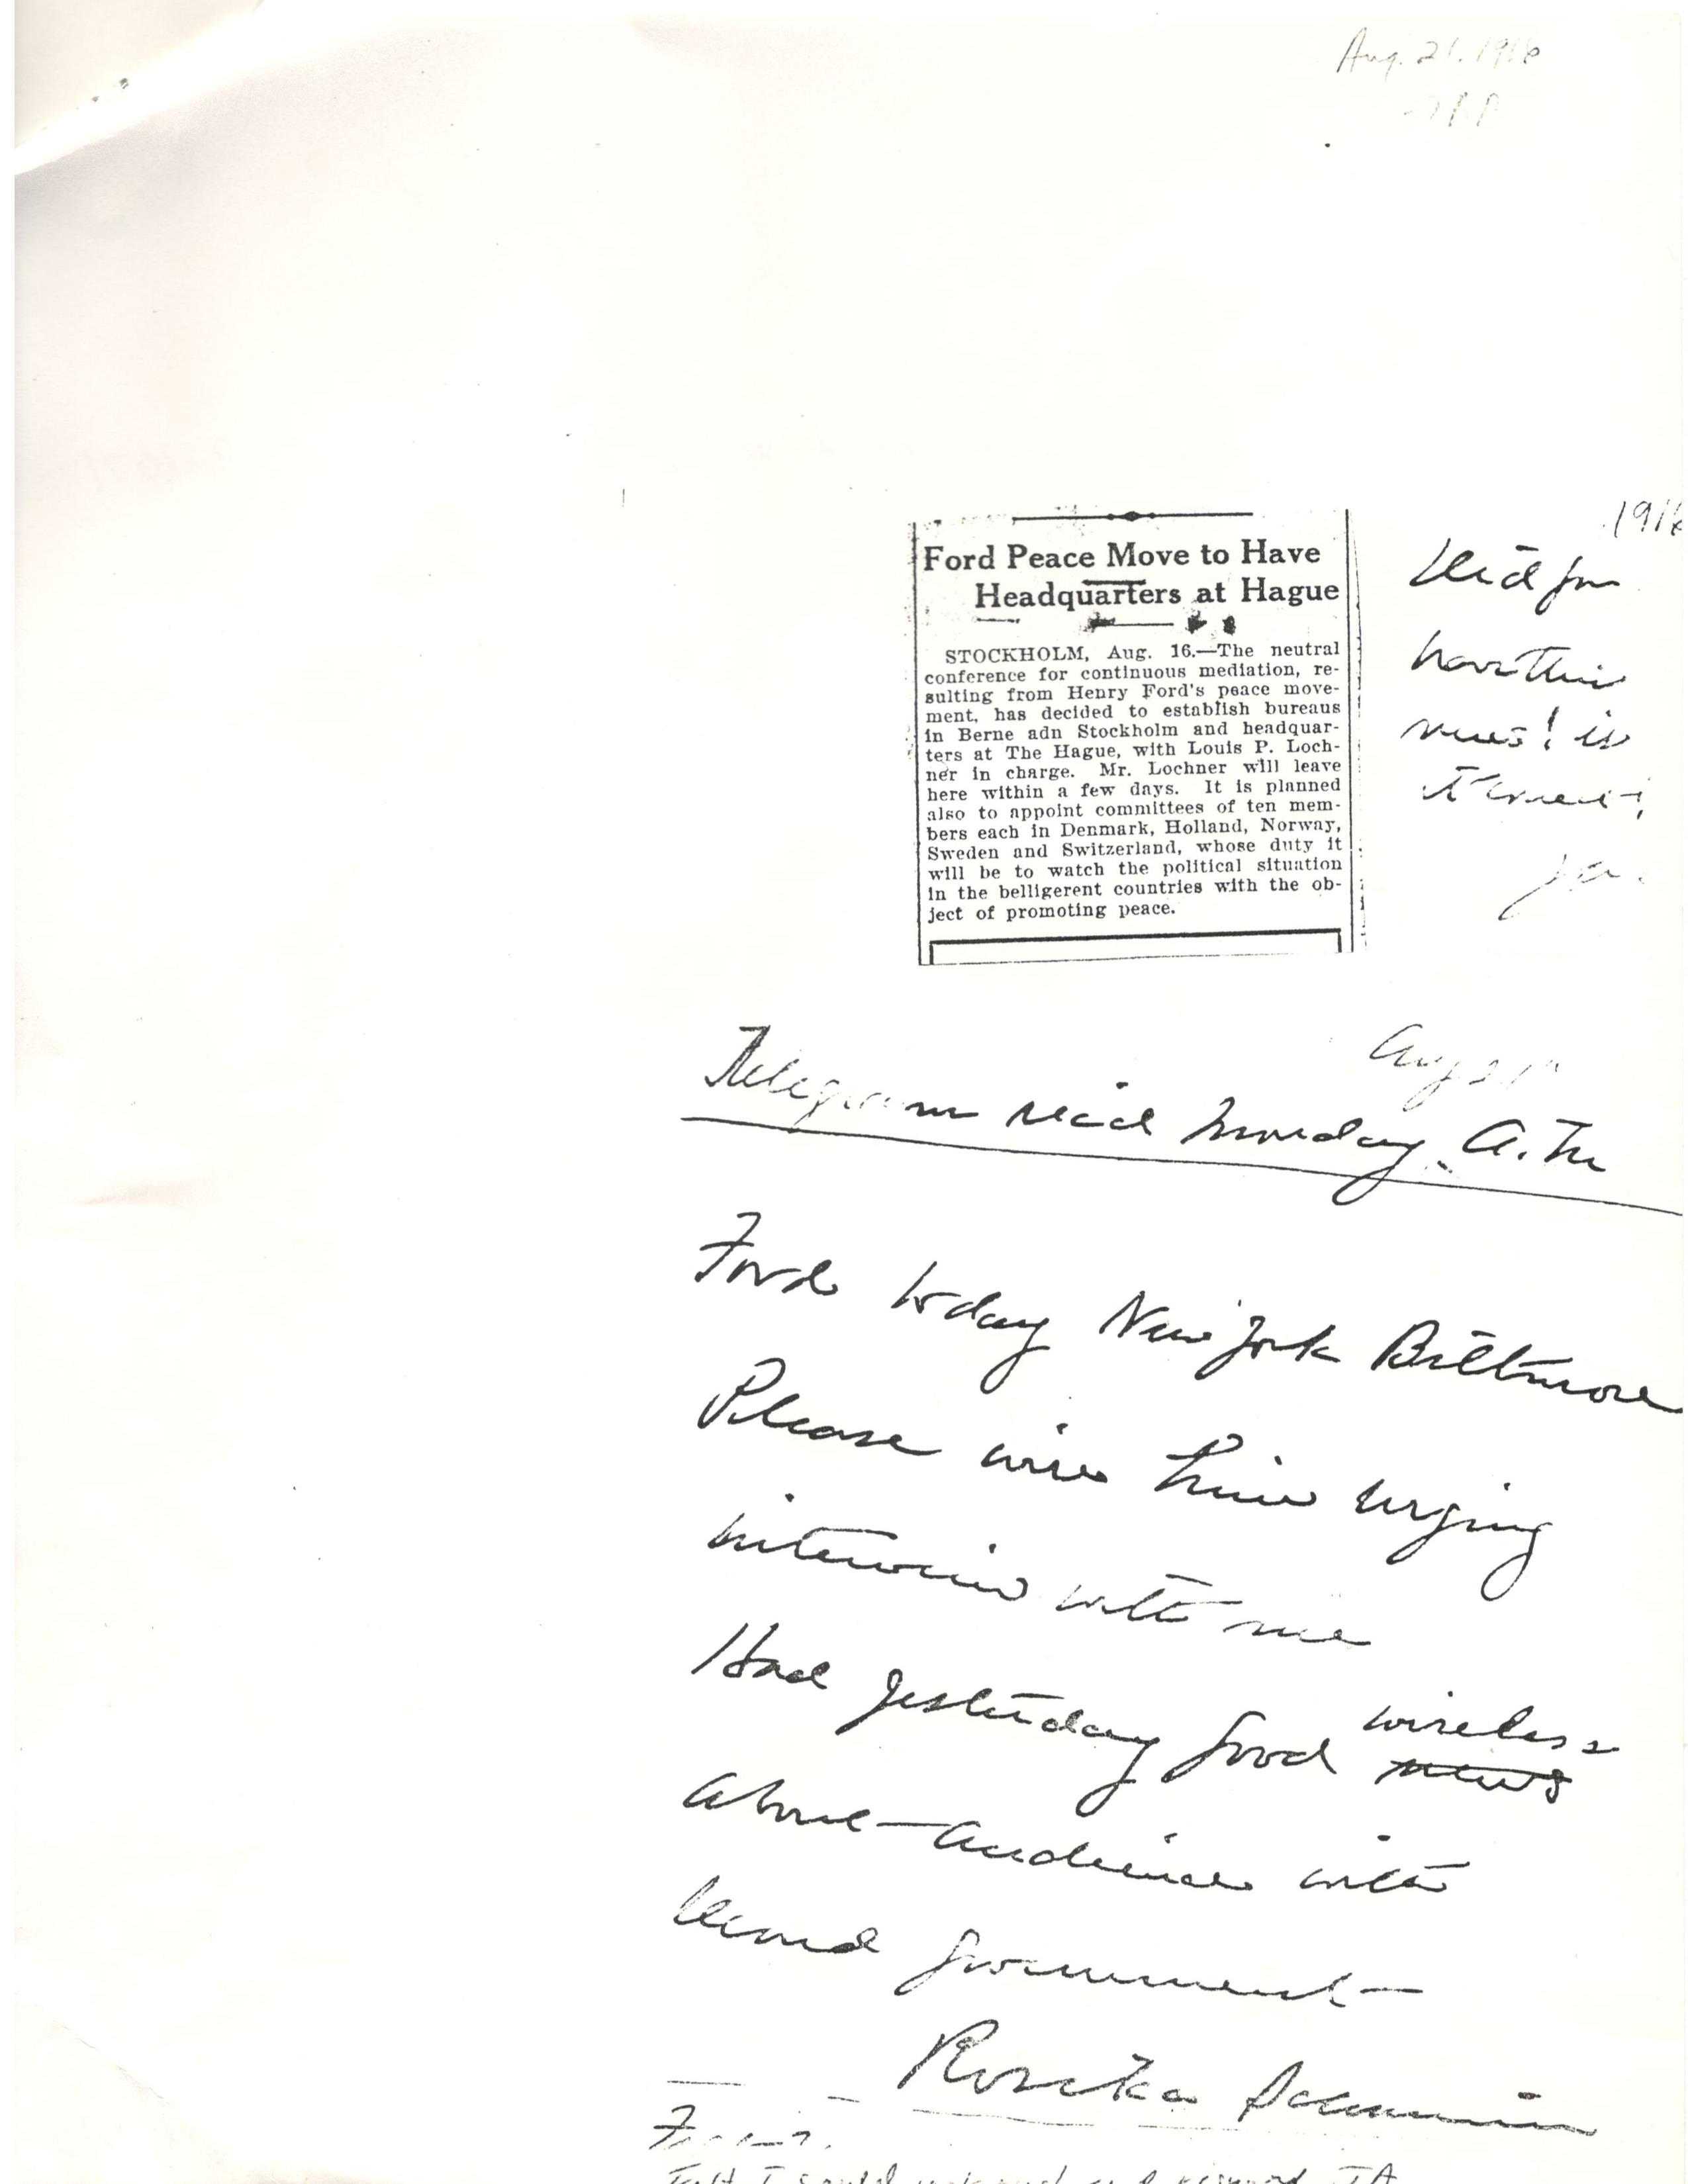 Aug. 21. 1916
1916
Ford Peace Move to Have
Headquarters at Hague
STOCKHOLM, Aug. 16.—The neutral
conference for continuous mediation, re-
sulting from Henry Ford's peace move-
ment, has decided to establish bureaus
in Berne adn Stockholm and headquar-
ters at The Hague, with Louis P. Loch-
ner in charge. Mr. Lochner will leave
here within a few days. It is planned
also to appoint committees of ten mem-
bers each in Denmark, Holland, Norway,
Sweden and Switzerland, whose duty it
will be to watch the political situation
in the belligerent countries with the ob-
ject of promoting peace.
Did you
have this
news! is
it correct?
J.A.
Aug 21
Telegram recid Monday A.M
Ford today New York Biltmore
Please wire him urging
interview with me
Had yesterday good wireless
news
about audience with
government
Rosika Schwimmer
I could